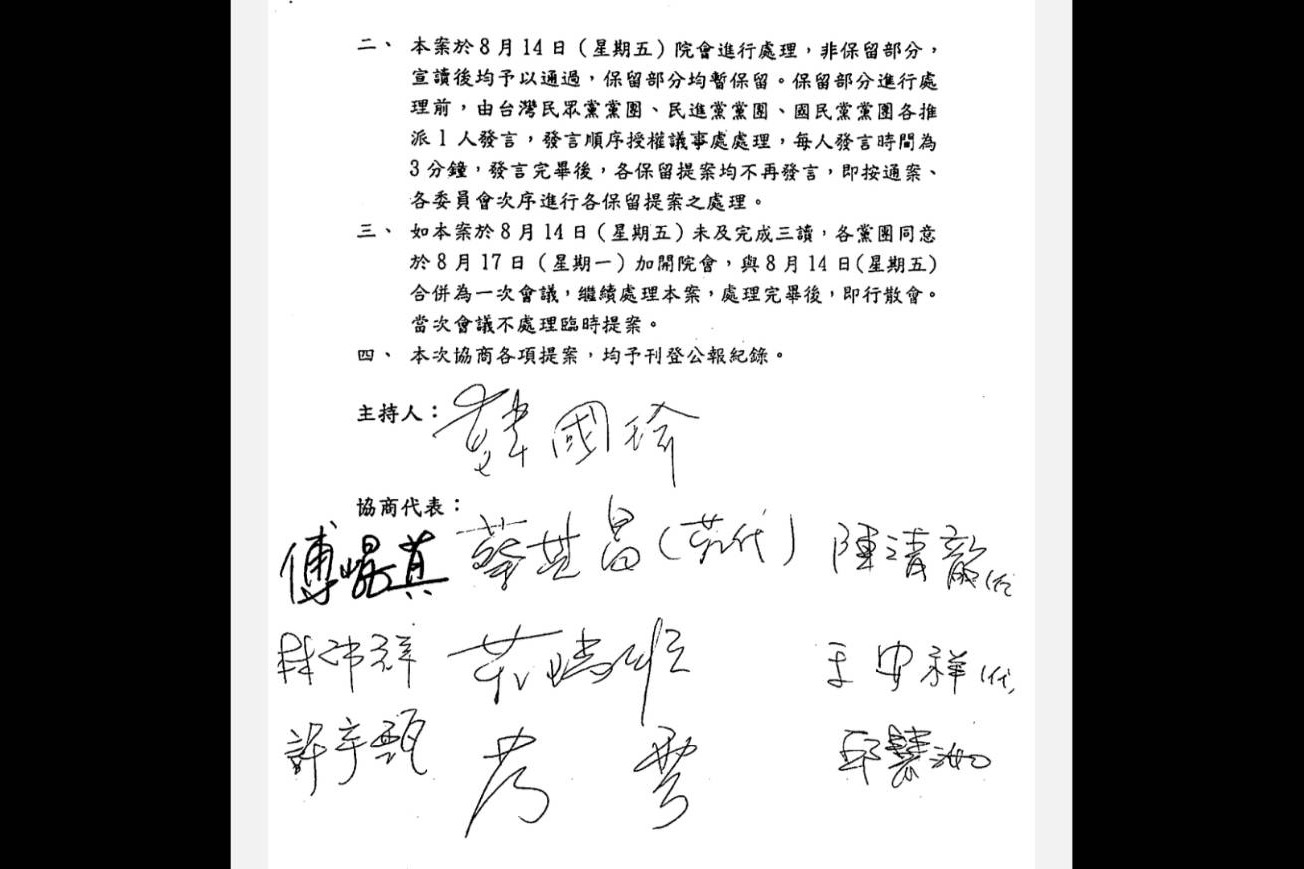 二、本案於8月14日（星期五）院會進行處理，非保留部分，
宣讀後均予以通過，保留部分均暫保留。保留部分進行處
理前，由台灣民眾黨黨團、民進黨黨團、國民黨黨團各推
派1人發言，發言順序授權議事處處理，每人發言時間為
3分鐘，發言完畢後，各保留提案均不再發言，即按通案、
各委員會次序進行各保留提案之處理。
三、如本案於8月14日（星期五）未及完成三讀，各黨團同意
於8月17日（星期一）加開院會，與8月14日(星期五)
合併為一次會議，繼續處理本案，處理完畢後，即行散會。
當次會議不處理臨時提案。
四、本次協商各項提案，均予刊登公報紀錄。
主持人：韓國瑜
協商代表：
傅崐萁 蔡其昌(莊代) 陳清龍代
林沛祥 莊瑞雄 王安祥代
許宇甄 邱慧洳